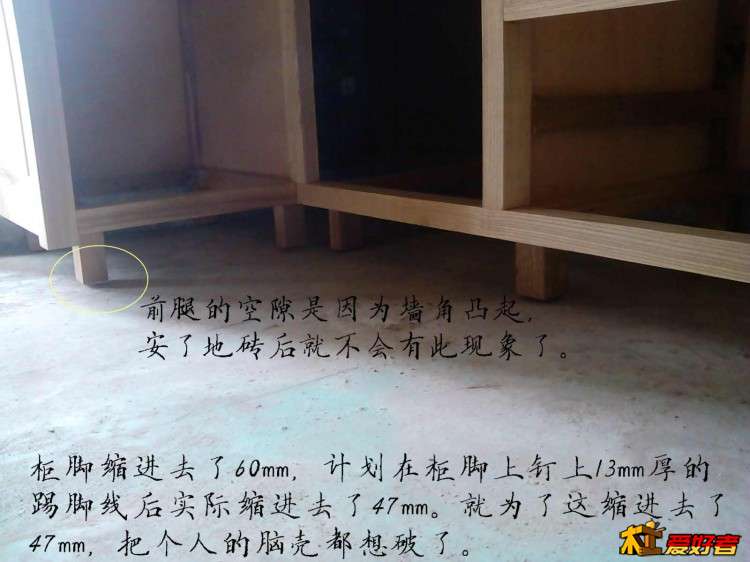 前腿的空隙是因为墙角凸起，
安了地砖后就不会有此现象了。
柜脚缩进去了60mm，计划在柜脚上钉上13mm厚的
踢脚线后实际缩进去了47mm。就为了这缩进去了
47mm，把个人的脑壳都想破了。
木工爱好者